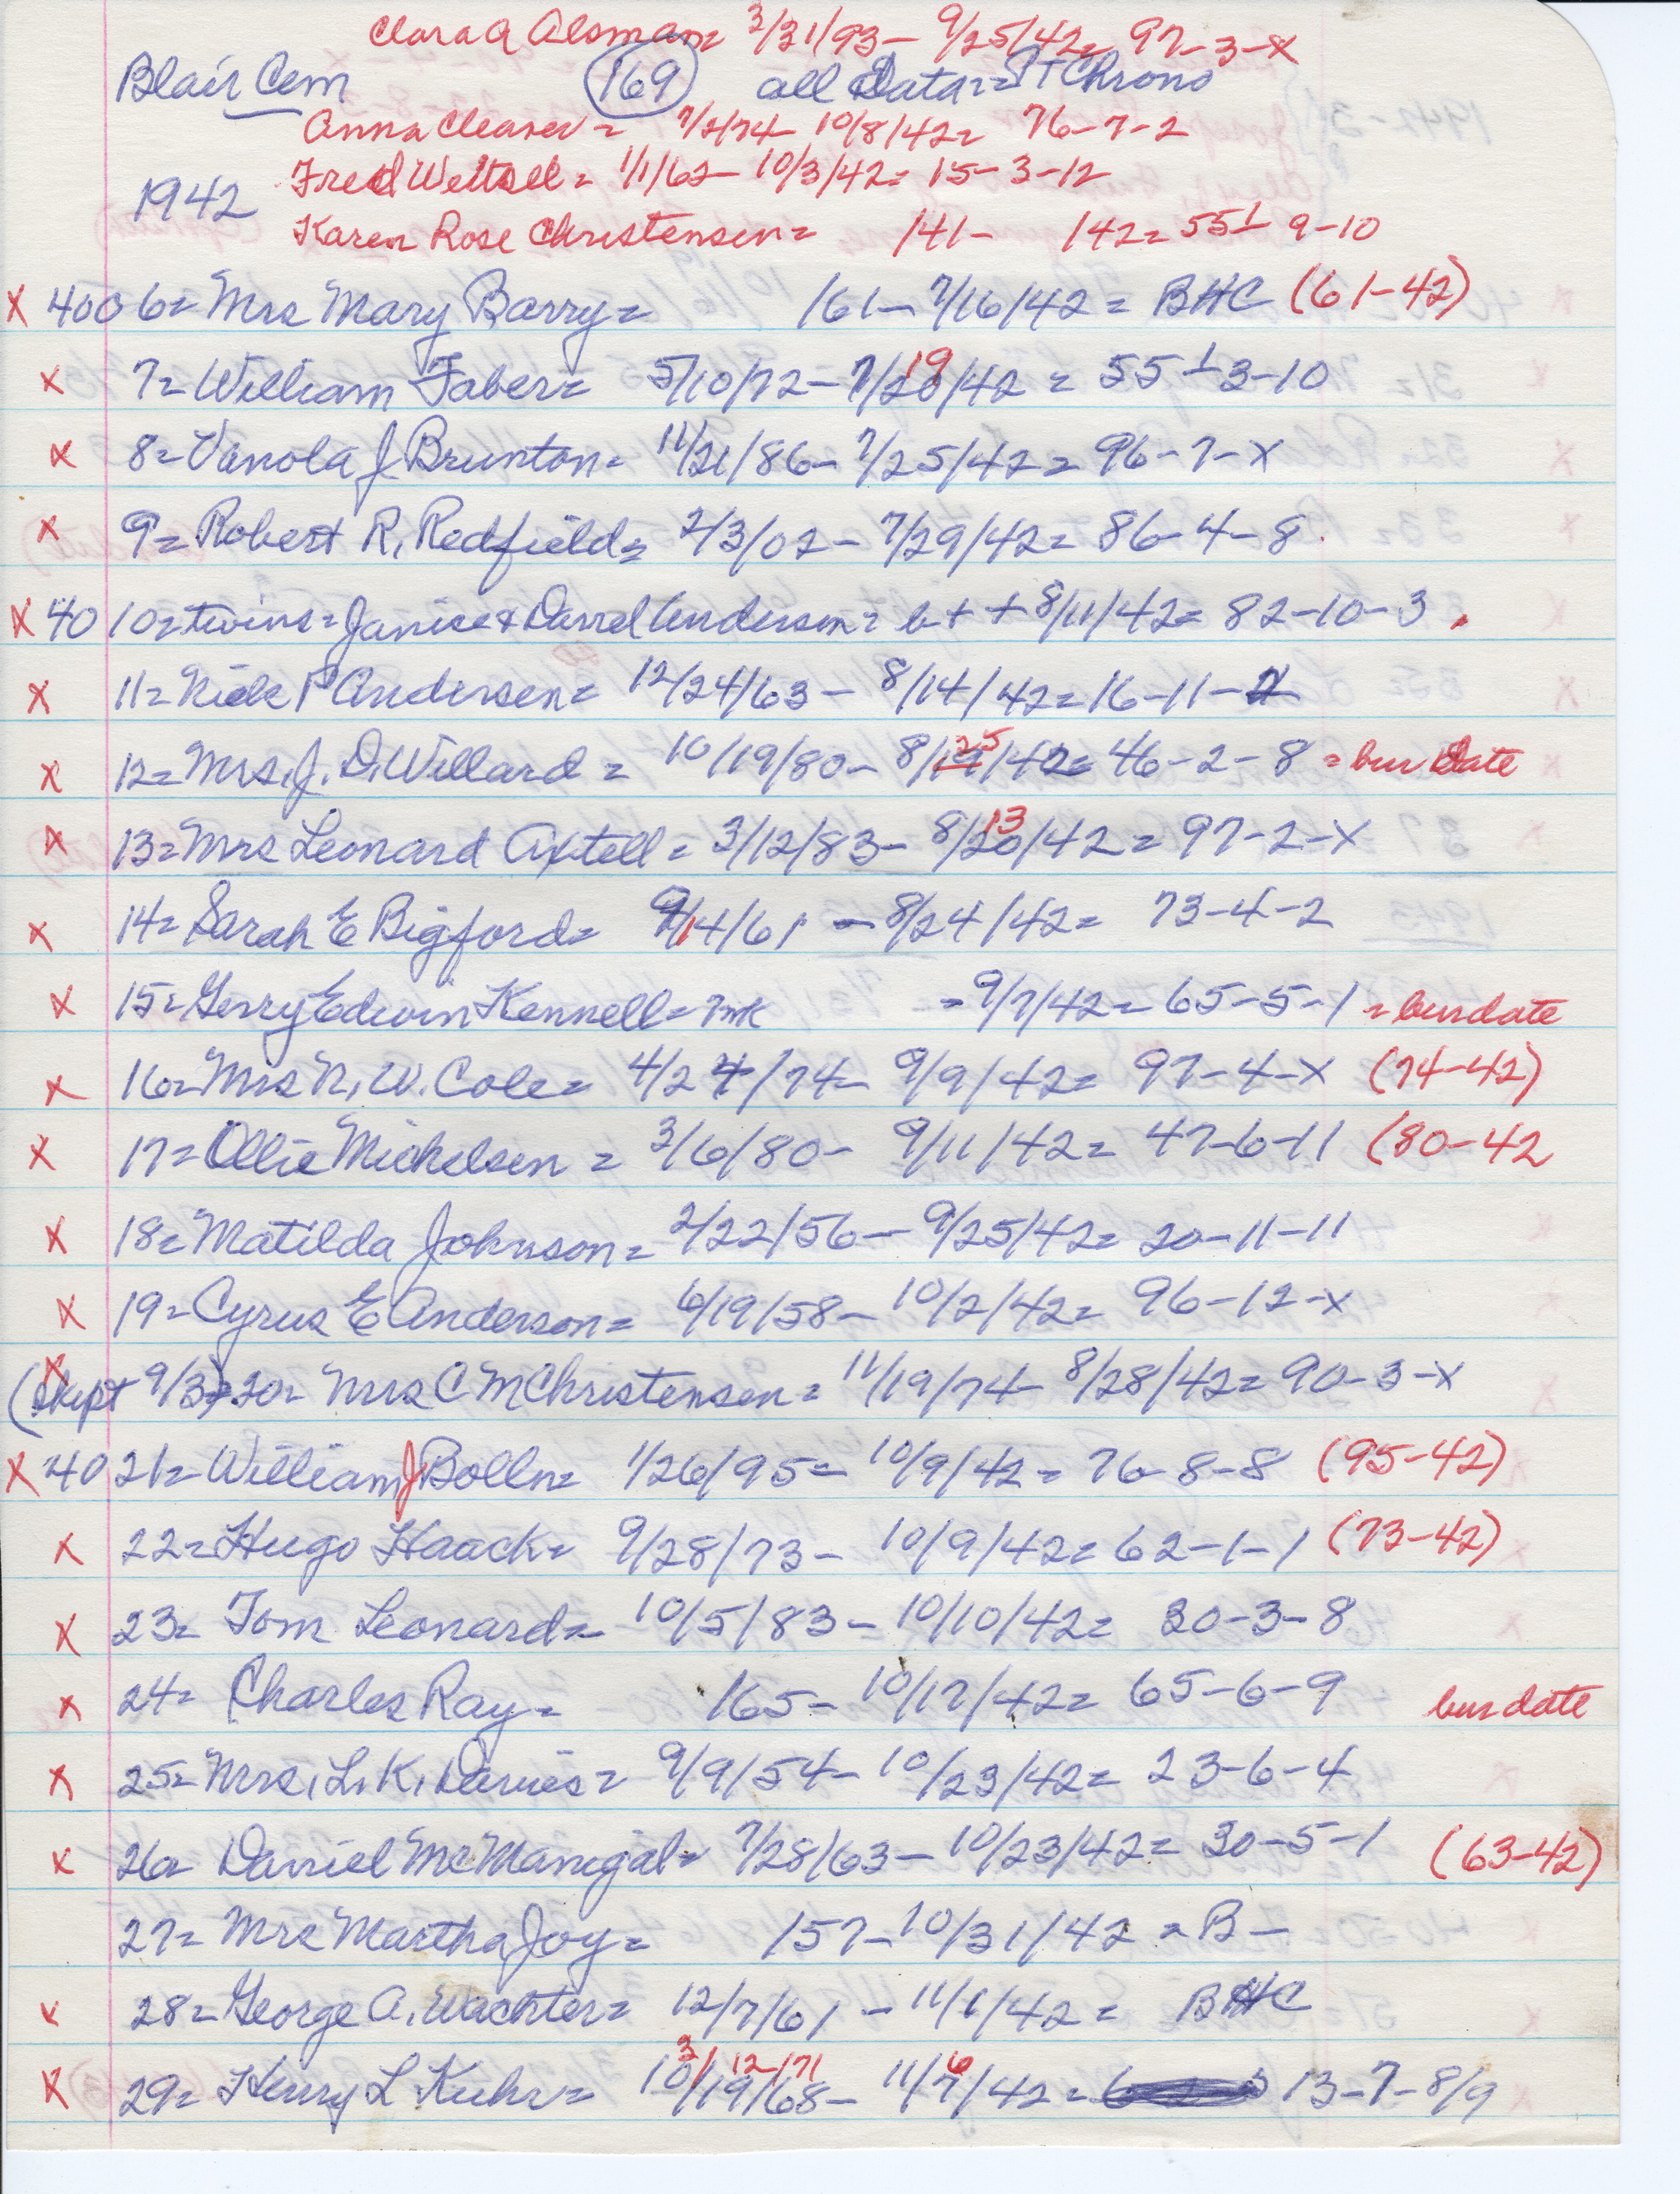 Clara A Alsman= 3/31/93- 9/25/42= 97-3-X
Blair Cem 169 all Data= St Chrono
Anna Cleaver= 7/2/74- 10/8/42= 76-7-2
Fred Weitsell= 1/1/62- 10/3/42= 15-3-12
1942
Karen Rose Christensen= /41- /42= 55⊥ 9-10
X 4006= Mrs Mary Barry= /61- 7/16/42= BHC (61-42)
X 7= William Faber= 5/10/72- 7/20/42= 55⊥3-10
19
X 8= Vanola J Brunton= 11/21/86- 7/25/42= 96-7-X
X 9= Robert R, Redfield= 2/3/02- 7/29/42= 86-4-8
X 4010= twins= Janice & Darrel Anderson= b++ 8/11/42= 82-10-3
X 11= Nick P Andersen= 12/24/63- 8/14/42= 16-11-2
X 12= Mrs. J. D. Willard= 10/19/80- 8/19/42= 46-2-8 = bur Date
25
X 13= Mrs Leonard Axtell= 3/12/83- 8/20/42= 97-2-X
13
X 14= Sarah E Bigford= 9/14/61 - 8/24/42= 73-4-2
X 15= Gerry Edwin Kennell= mk -9/7/42= 65-5-1 = bur date
X 16= Mrs N. W. Cole= 4/24/74- 9/9/42= 97-4-X (74-42)
X 17= Ollie Mickelsen= 3/6/80- 9/11/42= 47-6-11 (80-42
X 18= Matilda Johnson= 2/22/56- 9/25/42= 20-11-11
X 19= Cyrus E Anderson= 6/19/58- 10/2/42= 96-12-X
X (skipt 9/3) 20= Mrs C M Christensen= 11/19/74- 8/28/42= 90-3-X
X 4021= William J Bolln= 1/26/95= 10/9/42= 76-8-8 (95-42)
X 22= Hugo Haack= 9/28/73- 10/9/42= 62-1-1 (73-42)
X 23= Tom Leonard= 10/5/83- 10/10/42= 30-3-8
X 24= Charles Ray= /65- 10/17/42= 65-6-9 bur date
X 25= Mrs, L, K, Davies= 9/9/54- 10/23/42= 23-6-4
X 26= Daniel McManigal= 7/28/63- 10/23/42= 30-5-1 (63-42)
27= Mrs Martha Joy= /57- 10/31/42= B-
X 28= George A, Wachter= 12/7/61- 11/1/42= BHC
3/12/71 6
X 29= Henry L Kuhr= 10/19/68- 11/7/42= 13-7-8/9